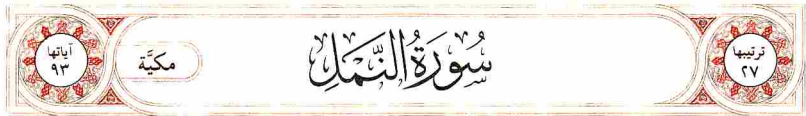 ترتيبها
٢٧
سُورَةُ النَّمْلِ
مكيَّة
آياتها
٩٣